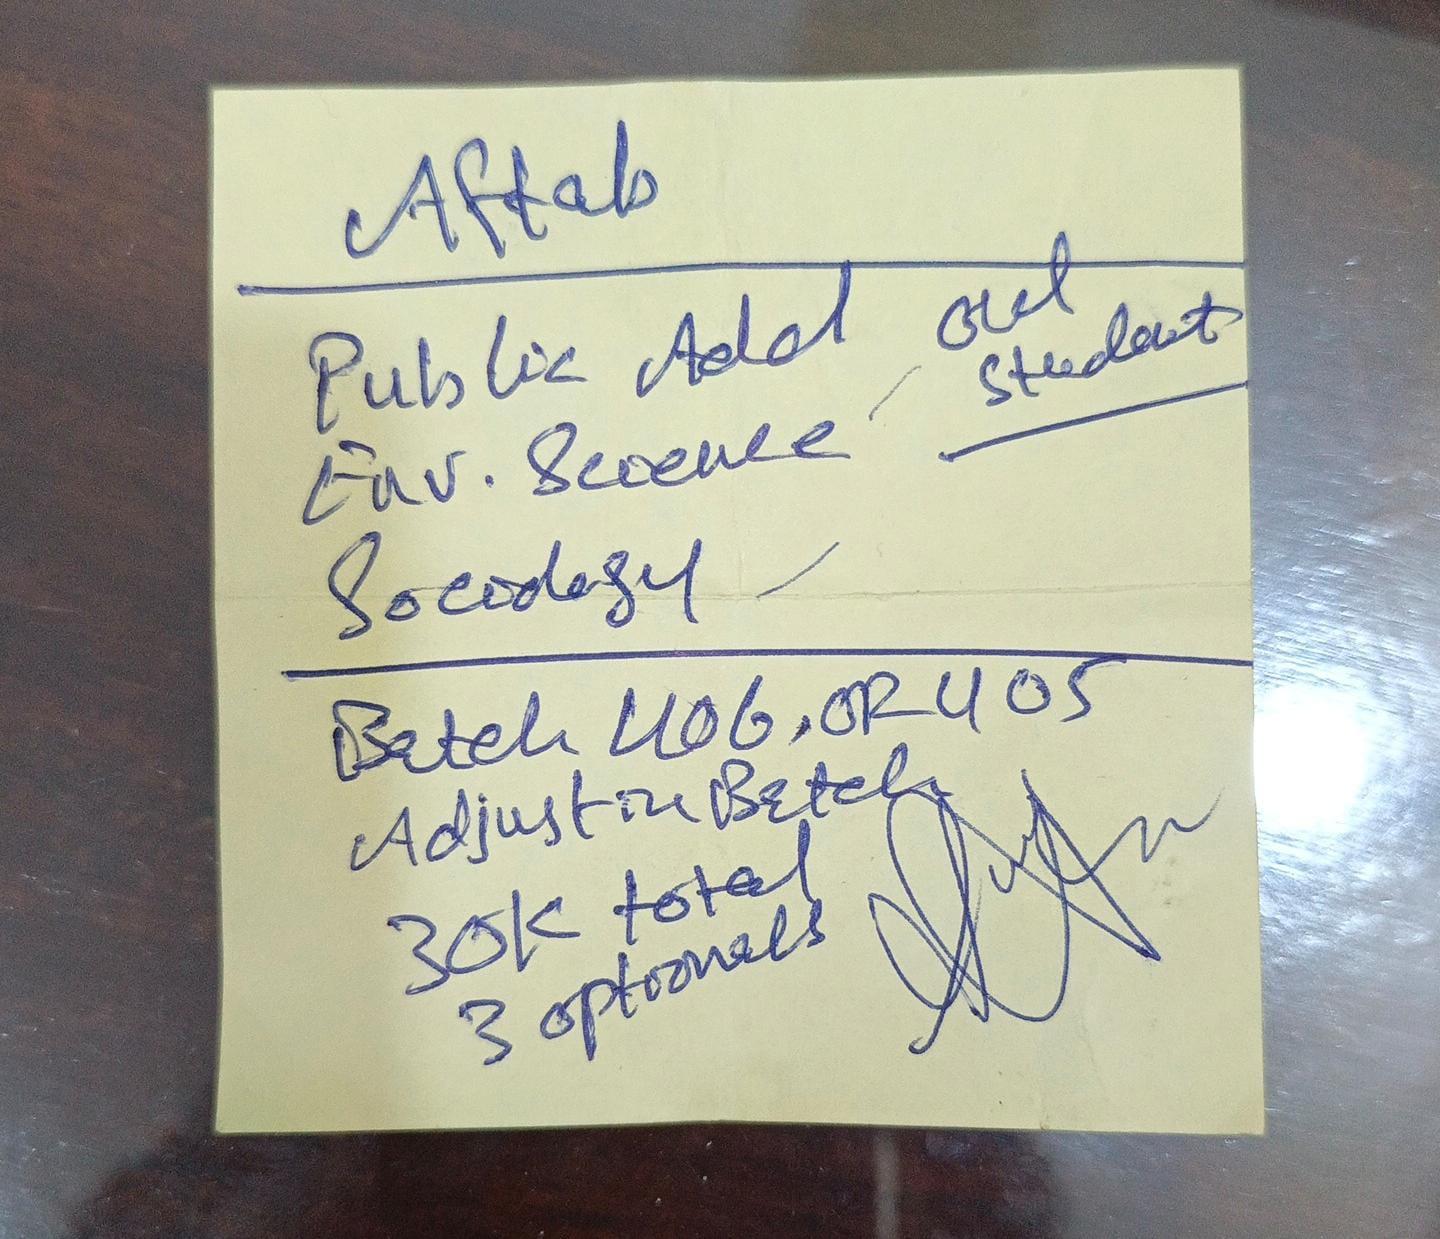 Aftab
Public Add
Old
Student
Env. Science
Sociology
Batch 406, OR 405
Adjust in Batch
30K total
3 optionals